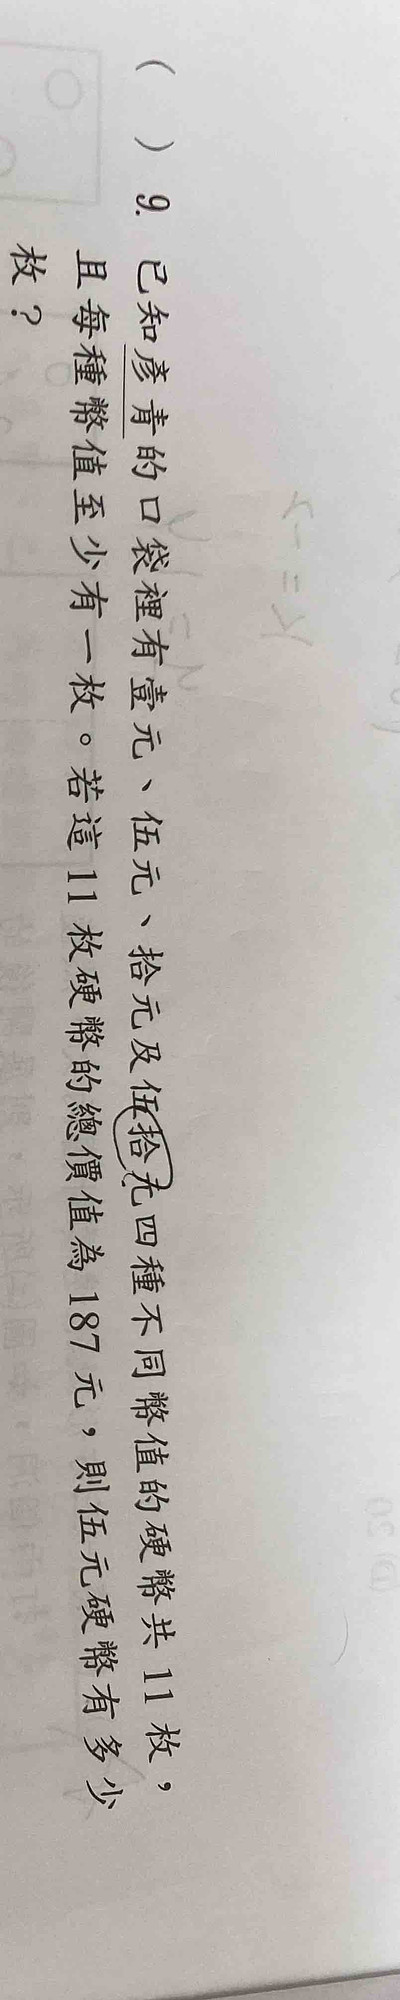 ( ) 9. 已知彥青的口袋裡有壹元、伍元、拾元及伍拾元四種不同幣值的硬幣共11枚，
且每種幣值至少有一枚。若這11枚硬幣的總價值為187元，則伍元硬幣有多少
枚？